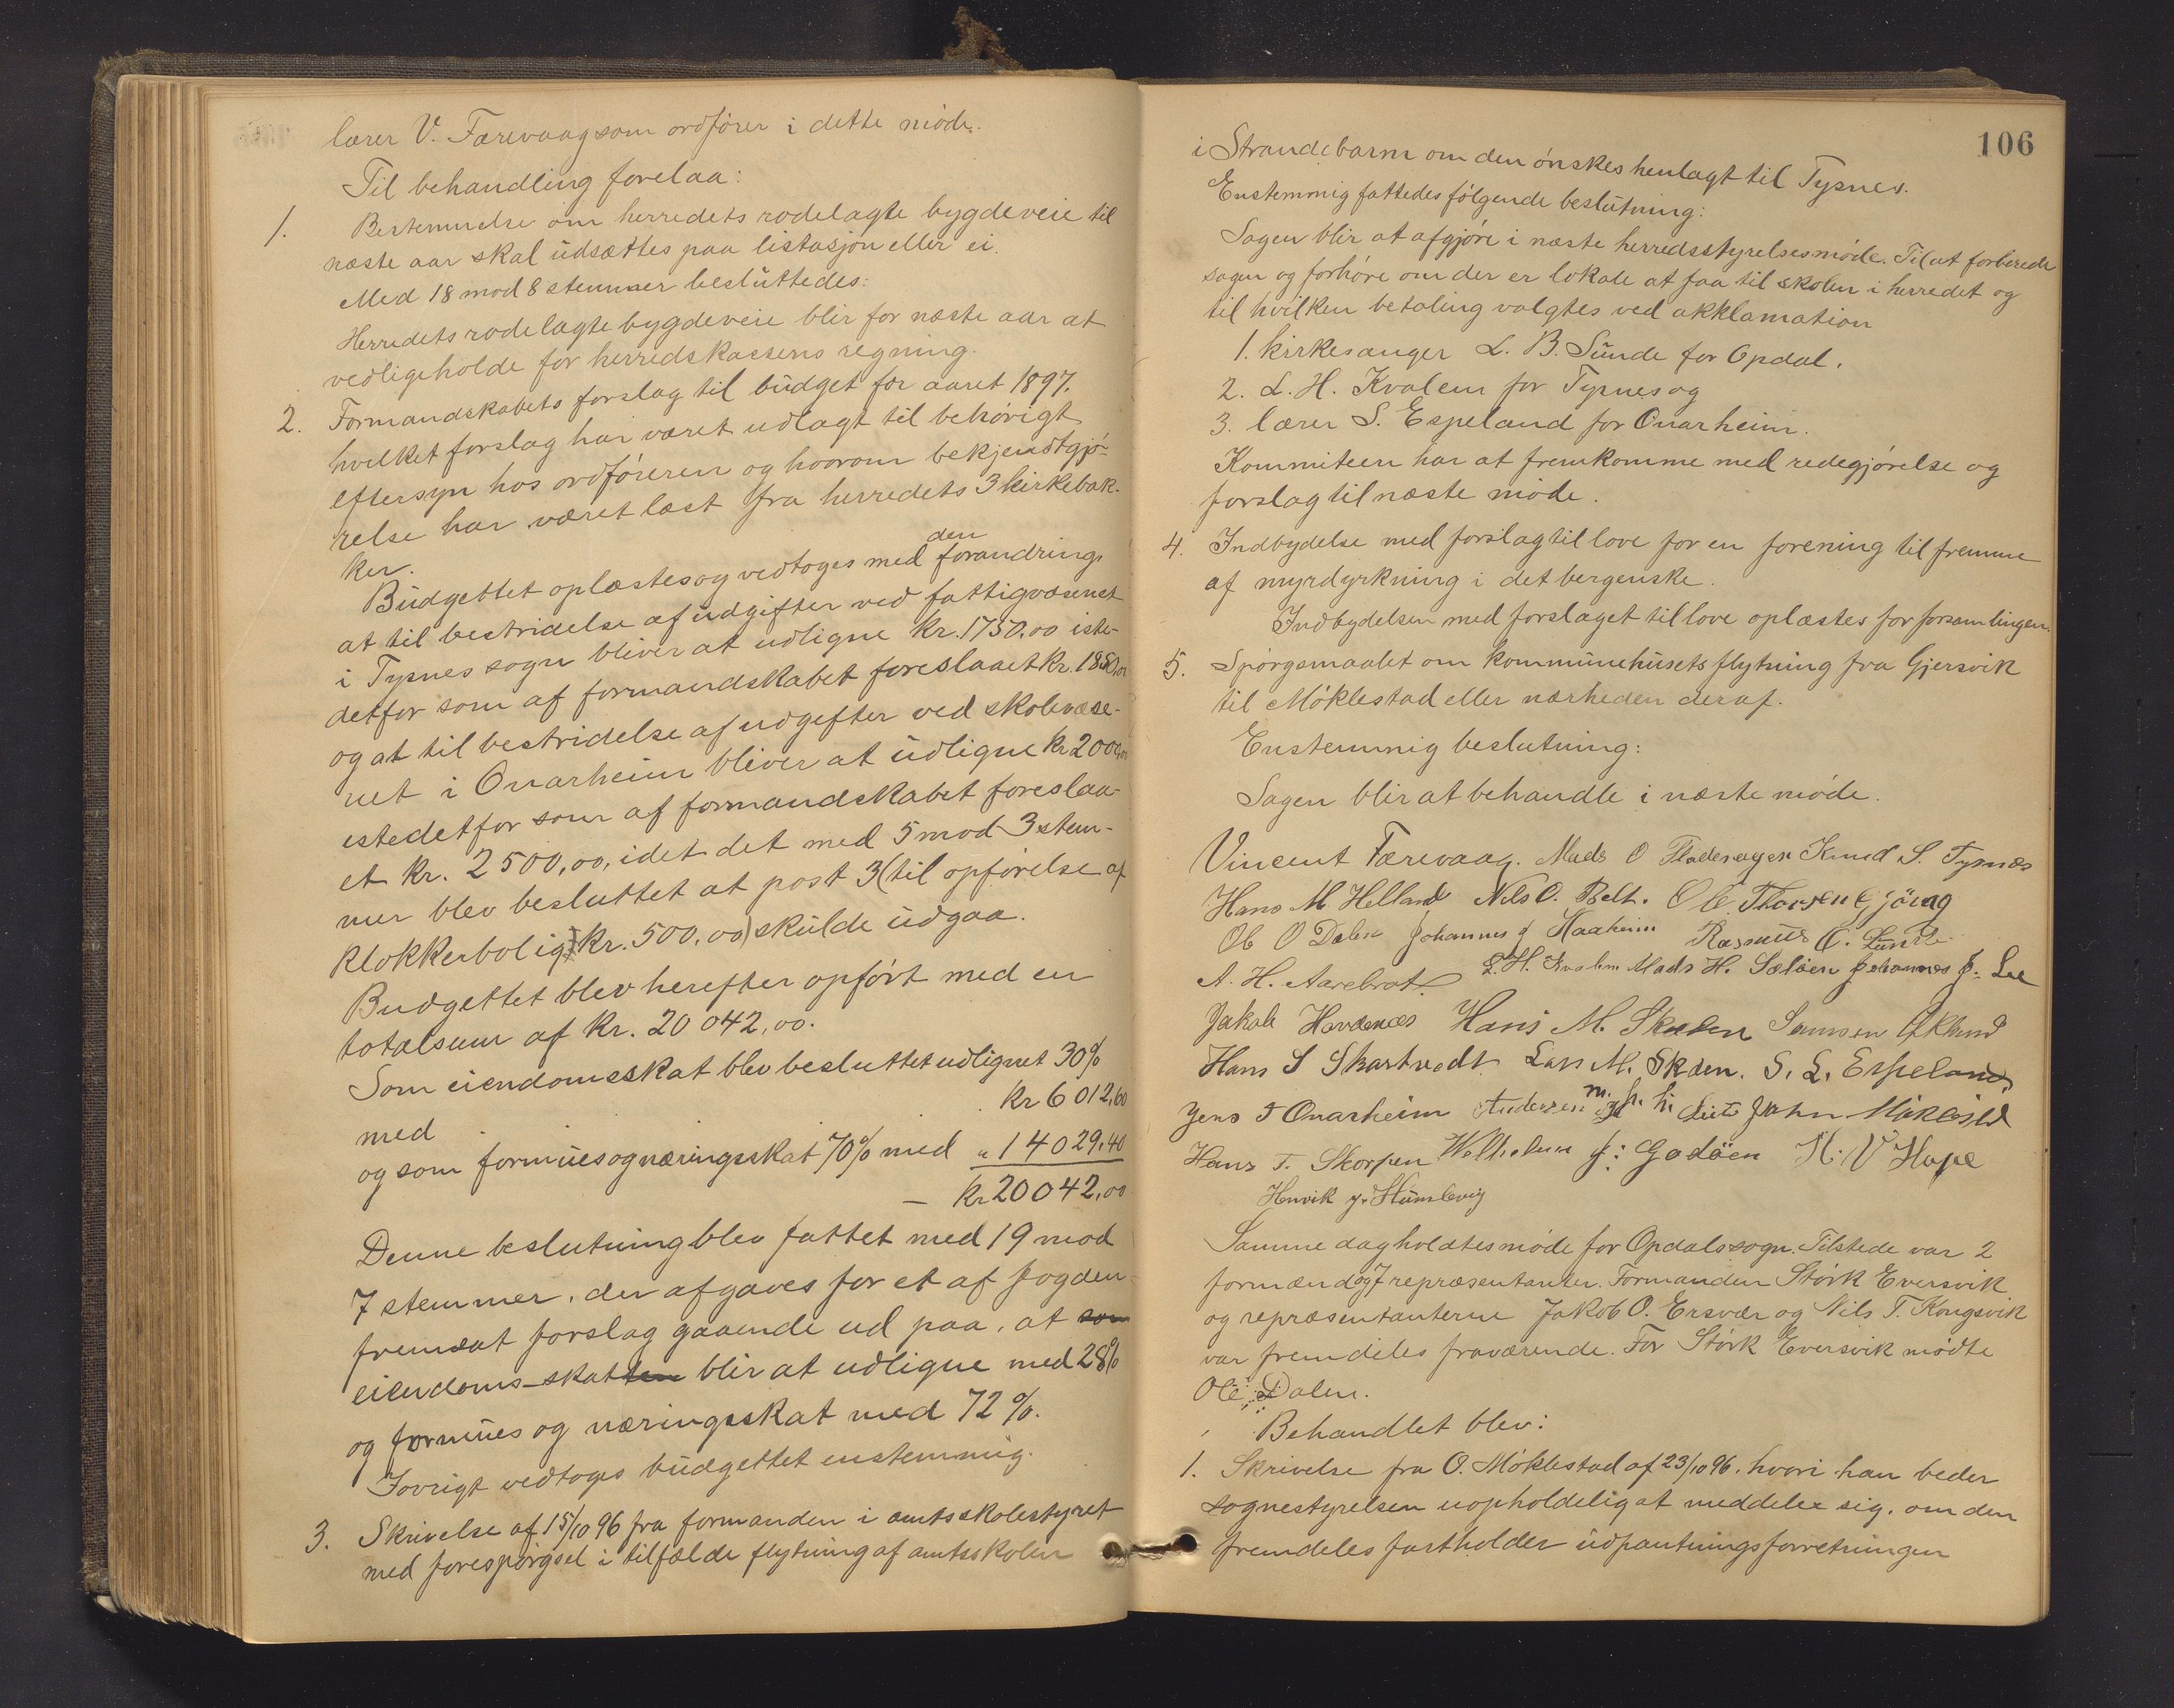 lærer V. Færevaag som ordfører i dette møde.
Til behandling forelaa:
1. Bestemmelse om herredets rodelagte bygdeveie til
næste aar skal udsættes paa listasjon eller ei.
Med 18 mod 8 stemmer besluttedes:
Herredets rodelagte bygdeveie blir for næste aar at
vedligeholde for herredskassens regning.
2. Formandskabets forslag til budget for aaret 1897,
hvilket forslag har været udlagt til behørigt
eftersyn hos ordføreren og hvorom bekjendtgjø-
relse har været læst fra herredets 3 kirkebak-
ker.
Budgettet oplæstes og vedtoges med den forandring,
at til bestridelse af udgifter ved fattigvæsenet
i Tysnes sogn bliver at udligne kr. 1750,00 iste-
detfor som af formandskabet foreslaaet kr. 1850,00
og at til bestridelse af udgifter ved skolevæse-
net i Onarheim bliver at udligne kr 2000,00
istedetfor som af formandskabet foreslaa-
et kr. 2500,00, idet det med 5 mod 3 stem-
mer blev besluttet at post 3 (til opførelse af
klokkerbolig kr. 500,00) skulde udgaa.
Budgettet blev herefter opført med en
totalsum af kr. 20042,00.
Som eiendomsskat blev besluttet udlignet 30%
med kr 6012,60
og som formues og næringsskat 70% med " 14029,40
— kr 20042,00
Denne beslutning blev fattet med 19 mod
7 stemmer, der afgaves for et af fogden
fremsat forslag gaaende ud paa, at som
eiendoms-skatten blir at udligne med 28%
og formues og næringsskat med 72%.
Iøvrigt vedtoges budgettet enstemmig.
3. Skrivelse af 15/10 96 fra formanden i amtsskolestyret
med forespørgsel i tilfælde flytning af amtsskolen
106
i Strandebarm om den ønskes henlagt til Tysnes.
Enstemmig fattedes følgende beslutning:
Sagen blir at afgjøre i næste herredsstyrelsesmøde. Til at forberede
sagen og forhøre om der er lokale at faa til skolen i herredet og
til hvilken betaling valgtes ved akklamation
1. kirkesanger L. B. Sunde for Opdal.
2. L. H. Kvalem for Tysnes og
3. lærer S. Espeland for Onarheim.
Kommiteen har at fremkomme med redegjørelse og
forslag til næste møde.
4. Indbydelse med forslag til love for en forening til fremme
af myrdyrkning i det bergenske.
Indbydelsen med forslaget til love oplæstes for forsamlingen.
5. Spørgsmaalet om kommunehusets flytning fra Gjersvik
til Møklestad eller nærheden deraf.
Enstemmig beslutning:
Sagen blir at behandle i næste møde.
Vincent Færevaag. Mads O Knud S. Tysnes
Hans M Helland Nils O. Belt. Ole Thorsen Gjöng
Ole O Dalen Johannes J Haaheim Rasmus O. Sunde
A. H. Aarebrot. L. H. Kvalem Mads H. Sæløen Johannes J. Lee
Jakob Hovdenæs Hans M. Skaden Samson Økland
Hans S Skartvedt Lars M. Skaden. S. L. Espeland
Jens J Onarheim Andersen m. p. h. John
Hans T. Skorpen Wilhelm J: Godöen H. V Hope
Henrik J. Humlevig
Samme dag holdtes møde for Opdals sogn. Tilstede var 2
formænd og 7 repræsentanter. Formanden Størk Eversvik
og repræsentanterne Jakob O. Ersvær og Nils T. Kongsvik
var fremdeles fraværende. For Størk Eversvik mødte
Ole Dalen.
Behandlet blev:
1. Skrivelse fra O. Møklestad af 23/10 96, hvori han beder
sognestyrelsen uopholdelig at meddele sig, om den
fremdeles fastholder udpantningsforretningen